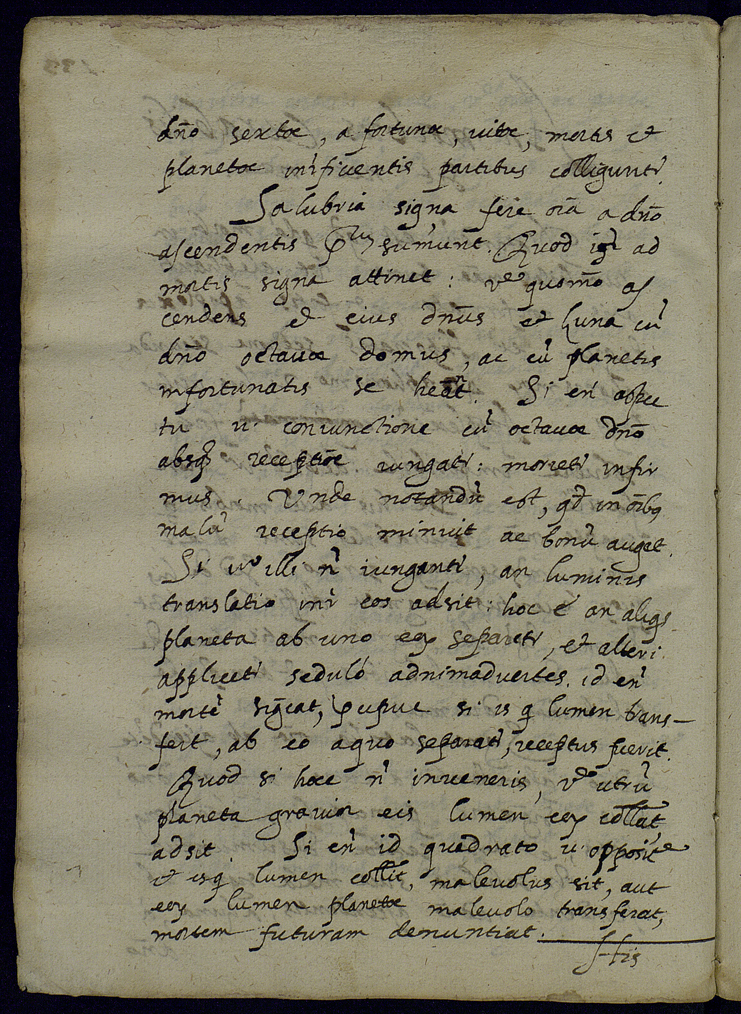 dño sextae, a fortunae, vitae, mortis et
planetae inr̃ficientis partibus colliguntr̃.
Salubria signa fere oĩa a dño
ascendentis sumunt. Quod igr̃ ad
mortis signa attinet: vᵉ quomõ as
cendens et eius dñus et Luna cũ
dño octavae domus, ac cũ planetis
infortunatis se heãt. Si en̄ aspec
tu u: coniunctione cũ octavae dño
absq; receptiõe iungatr̃: morietr̃ infir
mus. Unde notandũ est, qd̃ in oĩbus
malũ receptio minuit ac bonũ auget.
Si vº illi ñ iungantr̃, an luminis
translatio inr̃ eos adsit: hoc ē an aliqs
planeta ab uno eoꝝ separetr̃, et alteri
applicetr̃ seduló adnimadvertes. id en̄
mortẽ sigc̃at, si is q̃ lumen trans-
fert, ab eo aquo separatr̃, receptus fuerit.
Quod si hoc ñ inveneris, vᵈᵉ utrũ
planeta gravior eis lumen eoꝝ collãt
adsit. Si en̄ id quadrato u: opposite
et is q̃ lumen collit, malevolus sit, aut
eoꝝ lumen planetae malevolo transferat,
mortem futuram denuntiat.